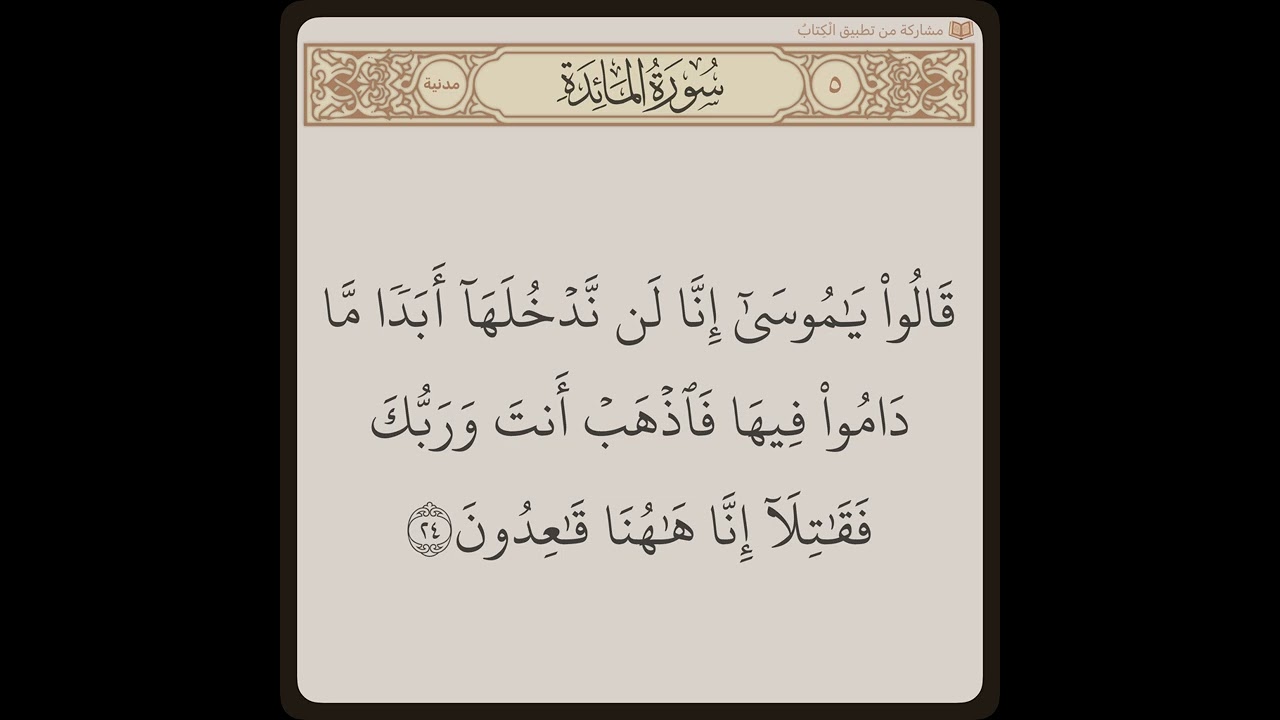 مشاركة من تطبيق الْكِتَابُ
٥ سُورَةُ المَائِدَةِ مدنية
قَالُوا۟ يَـٰمُوسَىٰٓ إِنَّا لَن نَّدۡخُلَهَآ أَبَدٗا مَّا
دَامُوا۟ فِيهَا فَٱذۡهَبۡ أَنتَ وَرَبُّكَ
فَقَـٰتِلَآ إِنَّا هَـٰهُنَا قَـٰعِدُونَ ٢٤